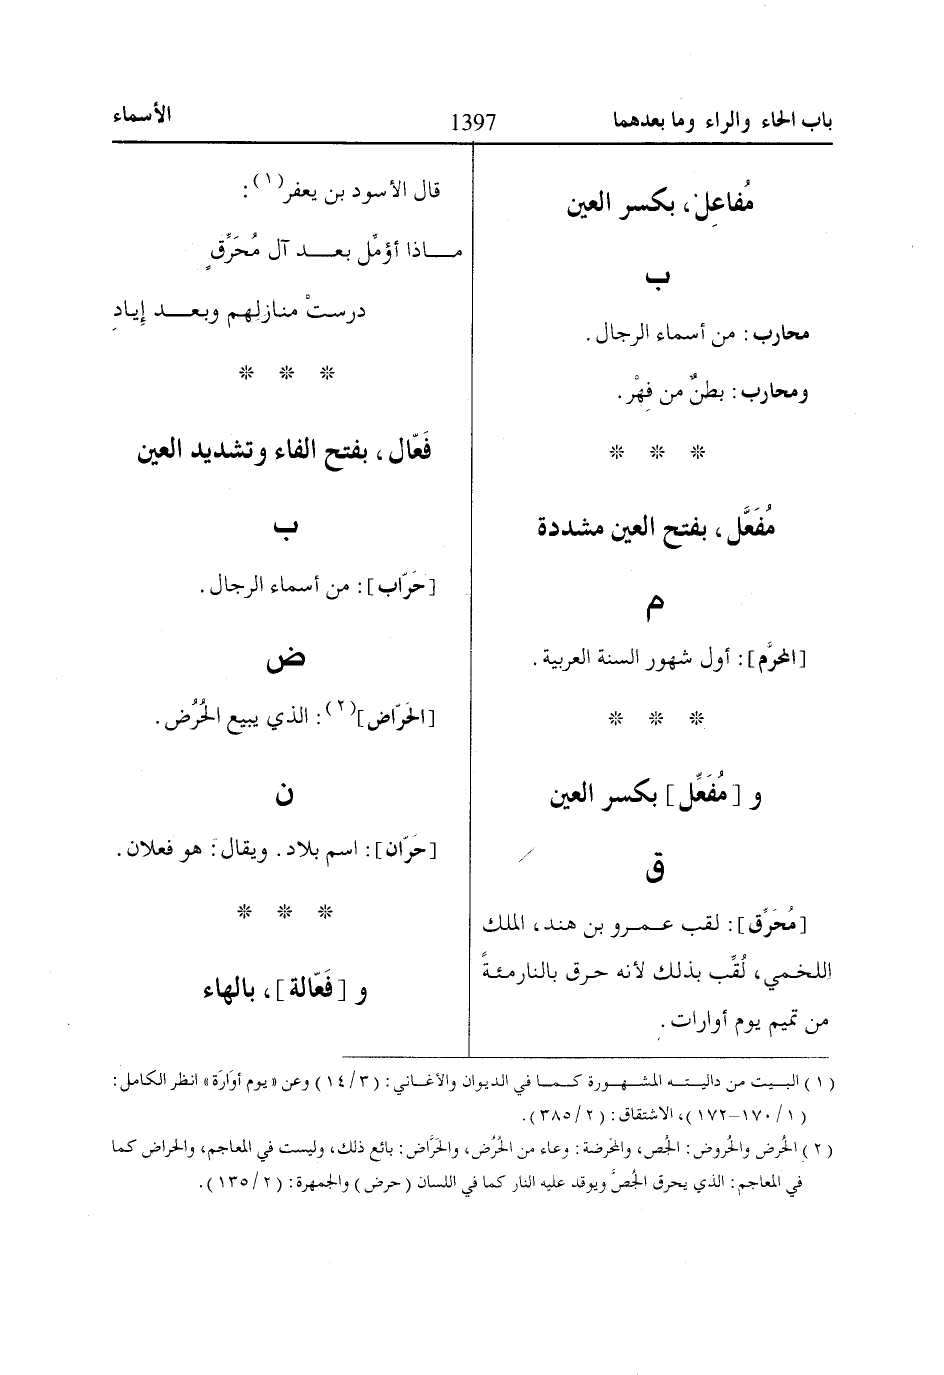 باب الحاء والراء وما بعدهما
1397
الأسماء
مُفاعِل، بكسر العين
ب
محارب: من أسماء الرجال.
ومحارب: بطنٌ من فِهْر.
* * *
مُفَعَّل، بفتح العين مشددة
م
[المحرَّم]: أول شهور السنة العربية.
* * *
و [مُفَعِّل] بكسر العين
ق
[مُحَرِّق]: لقب عمرو بن هند، الملك
اللخمي، لُقِّب بذلك لأنه حرق بالنار مئةً
من تميم يوم أوارات.
قال الأسود بن يعفر(١):
ماذا أؤمِّل بعد آل مُحَرِّقٍ
درستْ منازلهم وبعد إِيادِ
* * *
فَعّال، بفتح الفاء وتشديد العين
ب
[حَرّاب]: من أسماء الرجال.
ض
[الحَرّاض](٢): الذي يبيع الحُرُض.
ن
[حَرّان]: اسم بلاد. ويقال: هو فعلان.
* * *
و [فَعّالة]، بالهاء
(١) البيت من داليته المشهورة كما في الديوان والأغاني: (١٤/٣) وعن «يوم أوَارَة» انظر الكامل:
(١/١٧٠–١٧٢)، الاشتقاق: (٣٨٥/٢).
(٢) الحُرض والحُروض: الجُص، والمَحْرضة: وعاء من الحُرُض، والحَرَّاض: بائع ذلك، وليست في المعاجم، والحراض كما
في المعاجم: الذي يحرق الجُصَّ ويوقد عليه النار كما في اللسان (حرض) والجمهرة: (١٣٥/٢).